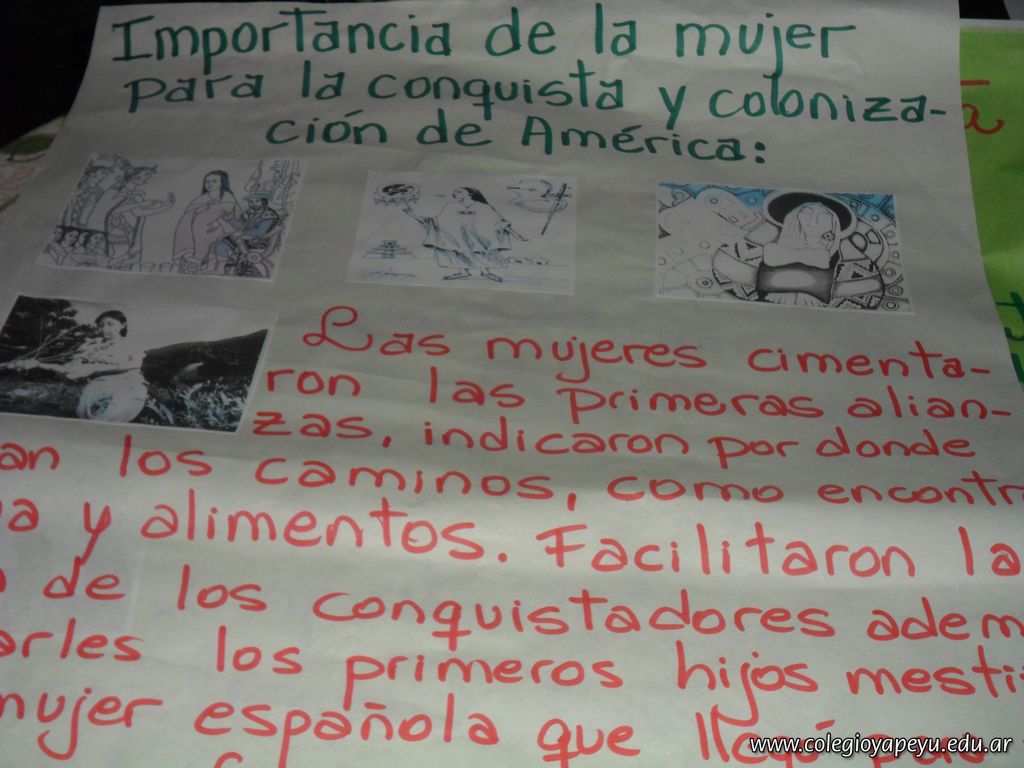 Importancia de la mujer
para la conquista y coloniza-
ción de América:
Las mujeres cimenta-
ron las primeras alian-
zas, indicaron por donde
an los caminos, como encontr
a y alimentos. Facilitaron la
de los conquistadores adem
arles los primeros hijos mesti
mujer española que llegó para
www.colegioyapeyu.edu.ar